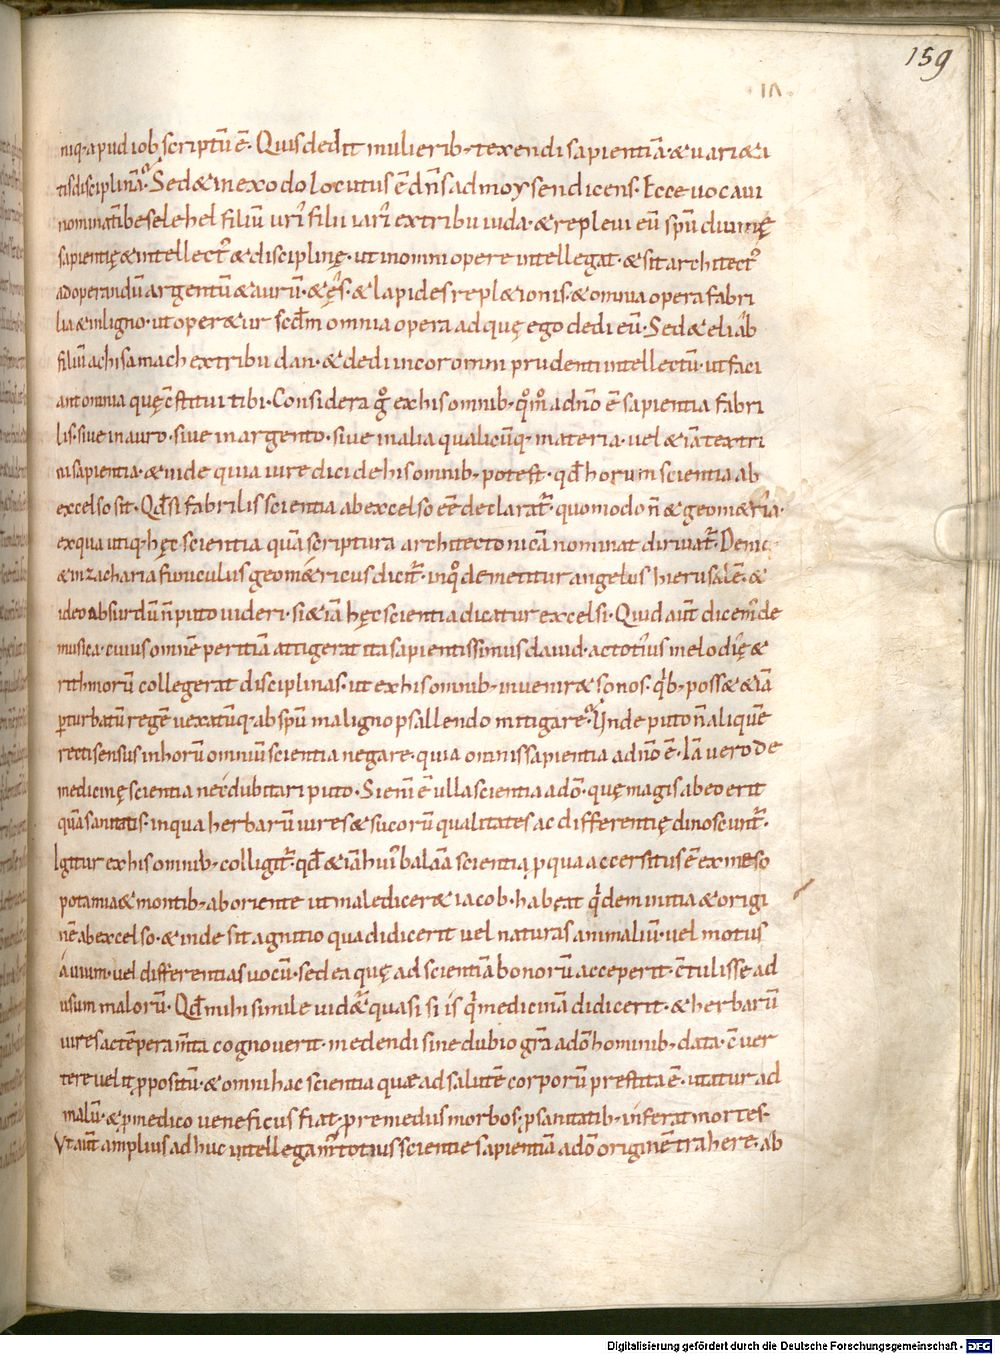 159
niq· apud iob scriptū ē· Quis dedit mulierib; texendi sapientiā· & uari&a
tis disciplinā· Sed & in exodo locutus ē dn̄s ad moysen dicens· Ecce uocaui
nominatī beselehel filiū uri filii iari ex tribu iuda· & repleui eū sp̄u diuinę
sapientię & intellect᾿ & disciplinę· ut in omni opere intellegat· & sit architect᾿
ad operandū argentū & aurū· & ęs· & lapides repl&ionis· & omnia opera fabri
lia & in ligno· ut oper&ur scdm̄ omnia opera ad quę ego dedi eū· Sed & eliab
filiū achisamach ex tribu dan· & dedi in cor omni prudenti intellectū· ut faci
ant omnia quę c̄stitui tibi· Considera gͦ ex his omnib; qͦmͦ ad n̄o ē sapientia fabri
lis· siue in auro· siue in argento· siue in alia qualicūq; materia· uel &iā textri
ni sapientia· & inde quia iure dici de his omnib; potest· qđ horum scientia ab
excelso sit· Qđsi fabrilis scientia ab excelso eē declarat᾿· quomodo n̄ & geom&ria·
ex qua utiq; hęc scientia quā scriptura architectonicā nominat diriuat᾿· Deniq;
& in zacharia funiculus geom&ricus dicit᾿· in qͦ demetitur angelus hierusalē· &
ideo absurdū n̄ puto uideri· si &iā hęc scientia dicatur excelsi· Quid aut̄ dicem᾿ de
musica· cuius omnē peritiā attigerat ita sapientissimus dauid· ac totius melodię &
rithmorū collegerat disciplinas· ut ex his omnib; inuenir& sonos· qͥb; poss& &iā
p̱turbatū regē uexatūq· ab sp̄u maligno psallendo mitigare· Unde puto n̄ aliquē
recti sensus in horū omniū scientia negare· quia omnis sapientia ad n̄o ē· Iā uero de
medicinę scientia nec dubitari puto· Si eni ē ulla scientia a dō· quę magis ab eo erit
quā sanitatis· in qua herbarū uires & sucorū qualitates ac differentię dinoscunt᾿·
Igitur ex his omnib; colligit᾿· qđ &iā hui᾿ balaā scientia p̱ qua accersitus ē ex meso
potamia & montib; ab oriente ut maledicer& iacob· habeat qͥdem initia & origi
nē ab excelso· & inde sit agnitio qua didicerit uel naturas animaliū· uel motus
auium· uel differentias uocū· sed ea quę ad scientiā bonorū acceperit· c̄tulisse ad
usum malorū· Qđ mihi simile uid&᾿ quasi si is qͥ medicinā didicerit· & herbarū
uires ac tēperam̄ta cognouerit· medendi sine dubio gr̄a a dō hominib; data· c̄uer
tere uelit p̱positū· & omni hac scientia quae ad salutē corporū prestita ē· utatur ad
malū· & p̱ medico ueneficus fiat· premedus morbos· p̱ sanitatib; inferat mortes·
Ut aut̄ amplius adhuc intellegam᾿ totius scientie sapientiā a dō originē trahere· ab
Digitalisierung gefördert durch die Deutsche Forschungsgemeinschaft - DFG